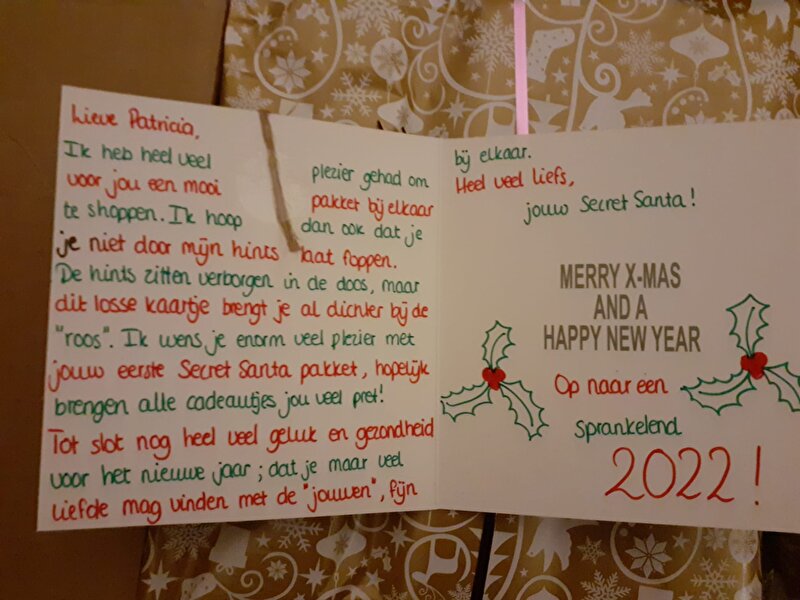 Lieve Patricia,
Ik heb heel veel plezier gehad om
voor jou een mooi pakket bij elkaar
te shoppen. Ik hoop dan ook dat je
je niet door mijn hints laat foppen.
De hints zitten verborgen in de doos, maar
dit losse kaartje brengt je al dichter bij de
"roos". Ik wens je enorm veel plezier met
jouw eerste Secret Santa pakket, hopelijk
brengen alle cadeautjes jou veel pret!
Tot slot nog heel veel geluk en gezondheid
voor het nieuwe jaar; dat je maar veel
liefde mag vinden met de "jouwen", fijn
bij elkaar.
Heel veel liefs,
jouw Secret Santa!
MERRY X-MAS
AND A
HAPPY NEW YEAR
Op naar een
sprankelend
2022!